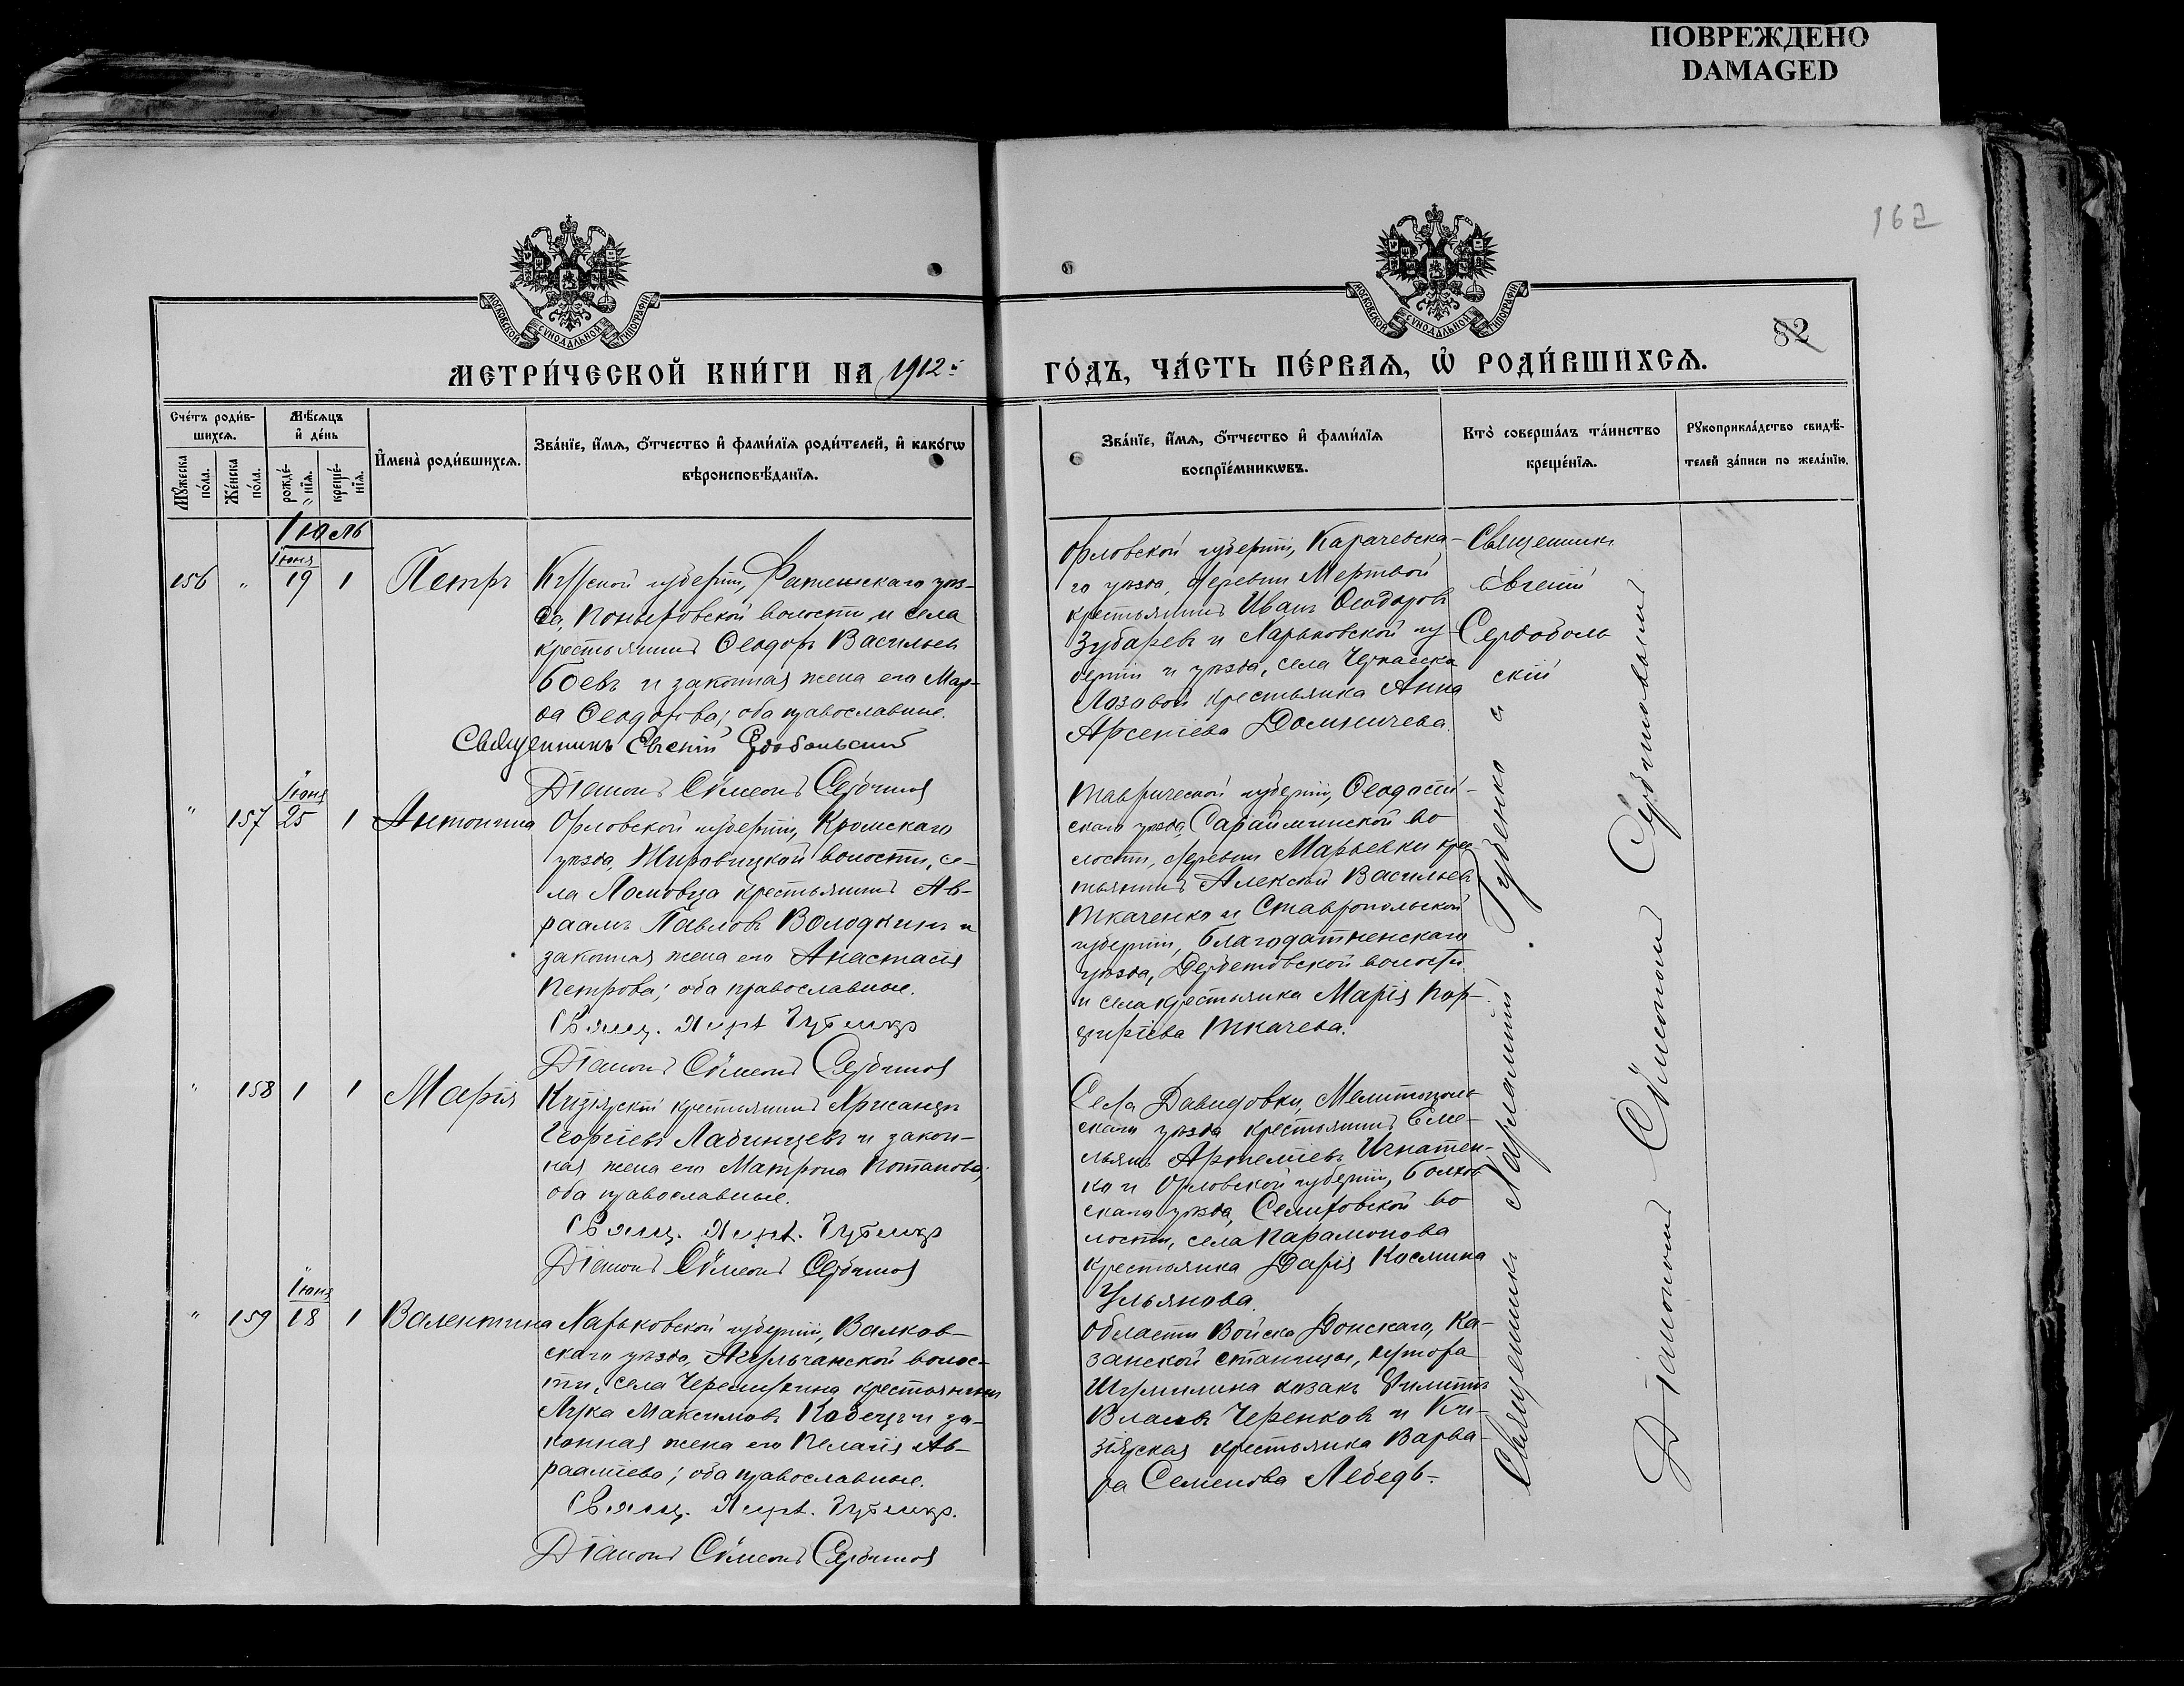 ПОВРЕЖДЕНО
DAMAGED
162
82
МОСКОВСКОЙ СѴНОДАЛЬНОЙ ТИПОГРАФІИ
МОСКОВСКОЙ СѴНОДАЛЬНОЙ ТИПОГРАФІИ
МЕТРИ́ЧЕСКОЙ КНИ́ГИ НА 1912 й
ГО́ДЪ, ЧА́СТЬ ПЕ́РВАѦ, Ѡ҆ РОДИ́ВШИХСѦ.
Сче́тъ роди́в-
шихсѧ.
Мꙋ́жеска по́ла.
Же́нска по́ла.
Мѣ́сѧцъ
и҆ де́нь
рожде́-нїѧ.
креще́-нїѧ.
И҆мена̀ роди́вшихсѧ.
Зва́нїе, и҆́мѧ, ѻ҆́тчество и҆ фами́лїѧ роди́телей, и҆ како́гѡ
вѣроисповѣ́данїѧ.
Зва́нїе, и҆́мѧ, ѻ҆́тчество и҆ фами́лїѧ
воспрїе́мникѡвъ.
Кто̀ соверша́лъ та́инство
креще́нїѧ.
Рꙋкоприкла́дство свидѣ́-
телей за́писи по жела́нїю.
Іюль
Іюня
156 " 19 1 Петръ
Курской губерніи, Фатежскаго уѣз-
да, Поныровской волости и села
крестьянинъ Ѳеодоръ Васильевъ
Боевъ и законная жена его Мар-
ѳа Ѳеодорова; оба православные.
Священникъ Евгеній Сердобольский
Діаконъ Сѵмеонъ Сербиновъ
Орловской губерніи, Карачевска-
го уѣзда, деревни Мертвой
крестьянинъ Иванъ Ѳеодоровъ
Зубаревъ и Харьковской гу-
берніи и уѣзда, села Черкасска
Лозовой крестьянка Анна
Арсеніева Домничева.
Священникъ
Евгеній
Сердоболь
скій
Іюня
" 157 25 1 Антонина
Орловской губерніи, Кромскаго
уѣзда, Жировицкой волости, се-
ла Ломовца крестьянинъ Ав-
раамъ Павловъ Володкинъ и
законная жена его Анастасія
Петрова; оба православные.
Свящ. Губенко
Діаконъ Сѵмеонъ Сербиновъ
Таврической губерніи, Ѳеодосій-
скаго уѣзда, Сарайминской во
лости, деревни Марьевки крес-
тьянинъ Алексій Васильевъ
Ткаченко и Ставропольской
губерніи, Благодатненскаго
уѣзда, Дербетовской волости
и села крестьянка Марія Пор-
фиріева Ткачева.
" 158 1 1 Марія
Кизіярскій крестьянинъ Хрисанѳъ
Георгіевъ Лабинцевъ и закон-
ная жена его Матрона Потапова;
оба православные.
Свящ. Губенко
Діаконъ Сѵмеонъ Сербиновъ
Села Давидовки, Мелитополь
скаго уѣзда крестьянинъ Еме-
льянъ Артеміевъ Игнатен-
ко и Орловской губерніи, Болхов
скаго уѣзда, во
лости, села Парамонова
крестьянка Дарія Космина
Ульянова.
Іюня
" 159 18 1 Валентина
Харьковской губерніи, Валков-
скаго уѣзда, волос-
ти, села Черемушина крестьянинъ
Лука Максимовъ Кобецъ и за-
конная жена его Пелагія Ав-
рааміева; оба православные.
Свящ. Губенко.
Діаконъ Сѵмеонъ Сербиновъ
Области Войска Донскаго, Ка-
занской станицы, хутора
Шумилина козакъ Филиппъ
Власовъ Черенковъ и Ки-
зіярская крестьянка Варва-
ра Семенова Лебедь.
Священники Харлампій Губенко и
Діакономъ Сѵмеономъ Сербиновымъ